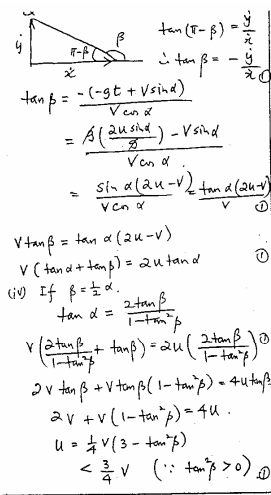 ẏ
π-β
β
ẋ
tan(π-β) = ẏ/ẋ
∴ tan β = - ẏ/ẋ ①
tan β = -(-gt + V sin α) / V cos α
= g(2u sin α / g) - V sin α / V cos α
= sin α (2u - V) / V cos α = tan α (2u - V) / V ①
V tan β = tan α (2u - V)
V (tan α + tan β) = 2u tan α ①
(iv) If β = ½ α.
tan α = 2 tan β / 1 - tan² β
V (2 tan β / 1 - tan² β + tan β) = 2u (2 tan β / 1 - tan² β) ①
2V tan β + V tan β (1 - tan² β) = 4u tan β
2V + V (1 - tan² β) = 4u.
u = ¼ V (3 - tan² β)
< ¾ V (∵ tan² β > 0). ①